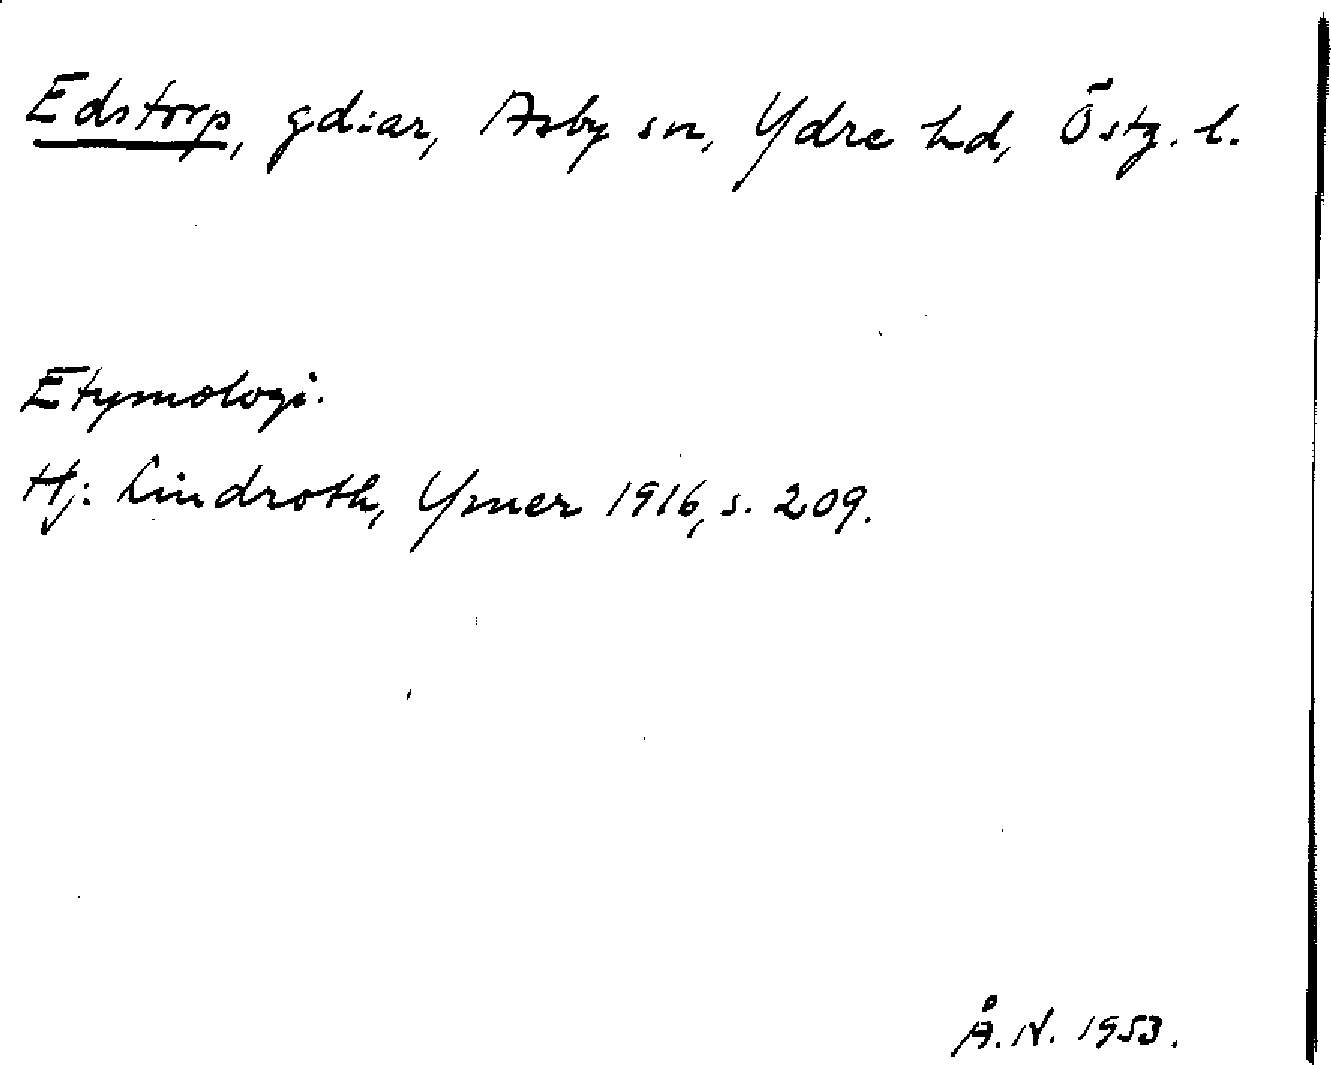 Edstorp, gd:ar, Asby sn, Ydre hd, Östg. l.
Etymologi.
Hj: Lindroth, Ymer 1916, s. 209.
Å. N. 1953.